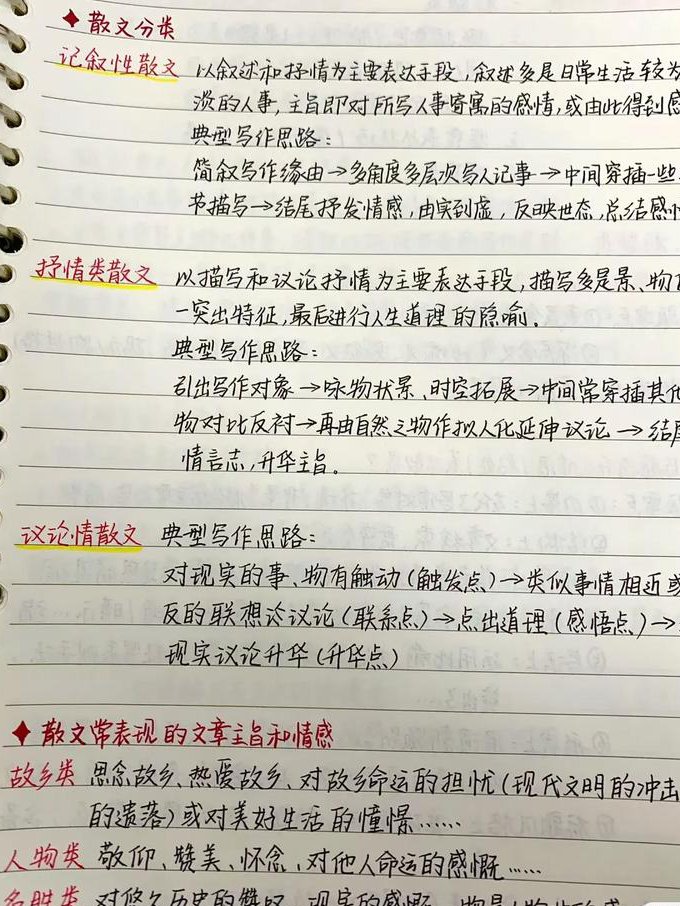 ◆ 散文分类
记叙性散文 以叙述和抒情为主要表达手段,叙述多是日常生活较为
淡的人事,主旨即对所写人事寄寓的感情,或由此得到感
典型写作思路:
简叙写作缘由→多角度多层次写人记事→中间穿插一些
节描写→结尾抒发情感,由实到虚,反映世态,总结感
抒情类散文 以描写和议论抒情为主要表达手段,描写多是景、物
一突出特征,最后进行人生道理的隐喻.
典型写作思路:
引出写作对象→咏物状景、时空拓展→中间常穿插其他
物对比反衬→再由自然之物作拟人化延伸议论→结尾
情言志,升华主旨.
议论情散文 典型写作思路:
对现实的事、物有触动(触发点)→类似事情相近或
反的联想议论(联系点)→点出道理(感悟点)→
现实议论升华(升华点)
◆ 散文常表现的文章主旨和情感
故乡类 思念故乡、热爱故乡、对故乡命运的担忧(现代文明的冲击
的遗落)或对美好生活的憧憬……
人物类 敬仰、赞美、怀念、对他人命运的感慨……
名胜类 对悠久历史的赞叹、现实的感慨、物是人